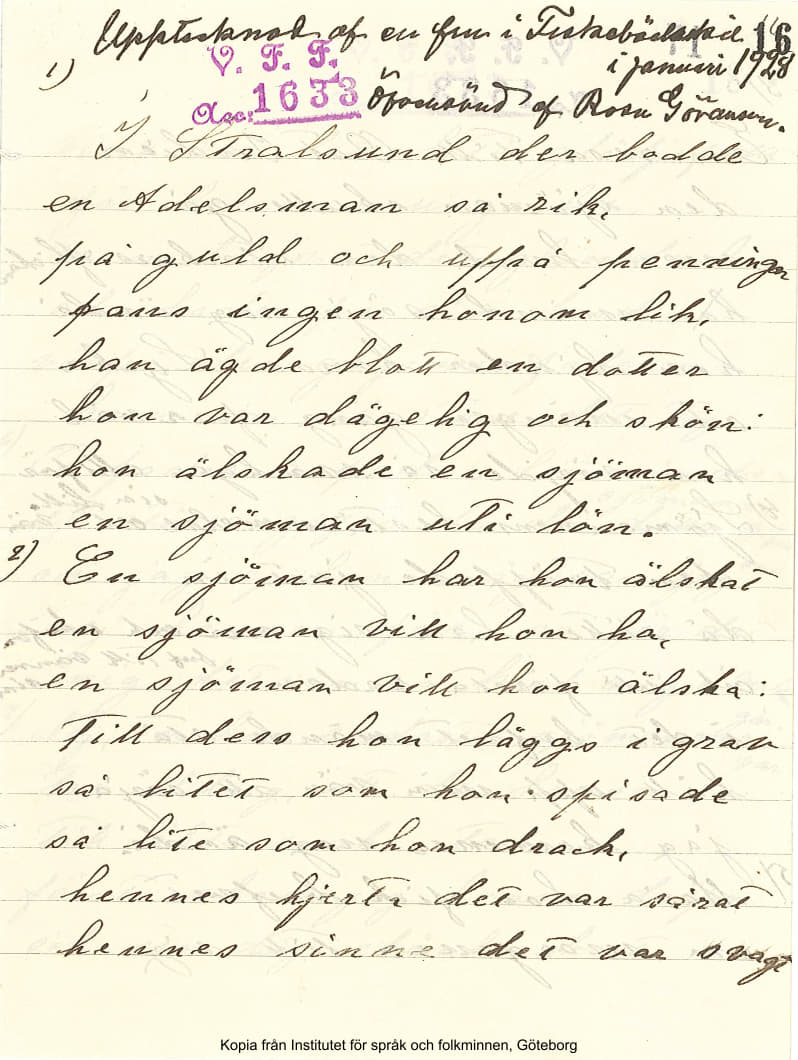 Upptecknad af en fru i Fiskebäckskil 16
i januari 1928
V. F. F.
Acc: 1633 Öfversänd af Rosa Göranson.
1)
I Stralsund der bodde
en Adelsman så rik,
på guld och uppå penningar
fans ingen honom lik,
han ägde blott en dotter
hon var dägelig och skön:
hon älskade en sjöman
en sjöman uti lön.
2) En sjöman har hon älskat
en sjöman vill hon ha,
en sjöman vill hon älska:
Till dess hon läggs i grav
så litet som hon spisade
så lite som hon drack,
hennes hjerta det var sårat
hennes sinne det var svagt
Kopia från Institutet för språk och folkminnen, Göteborg